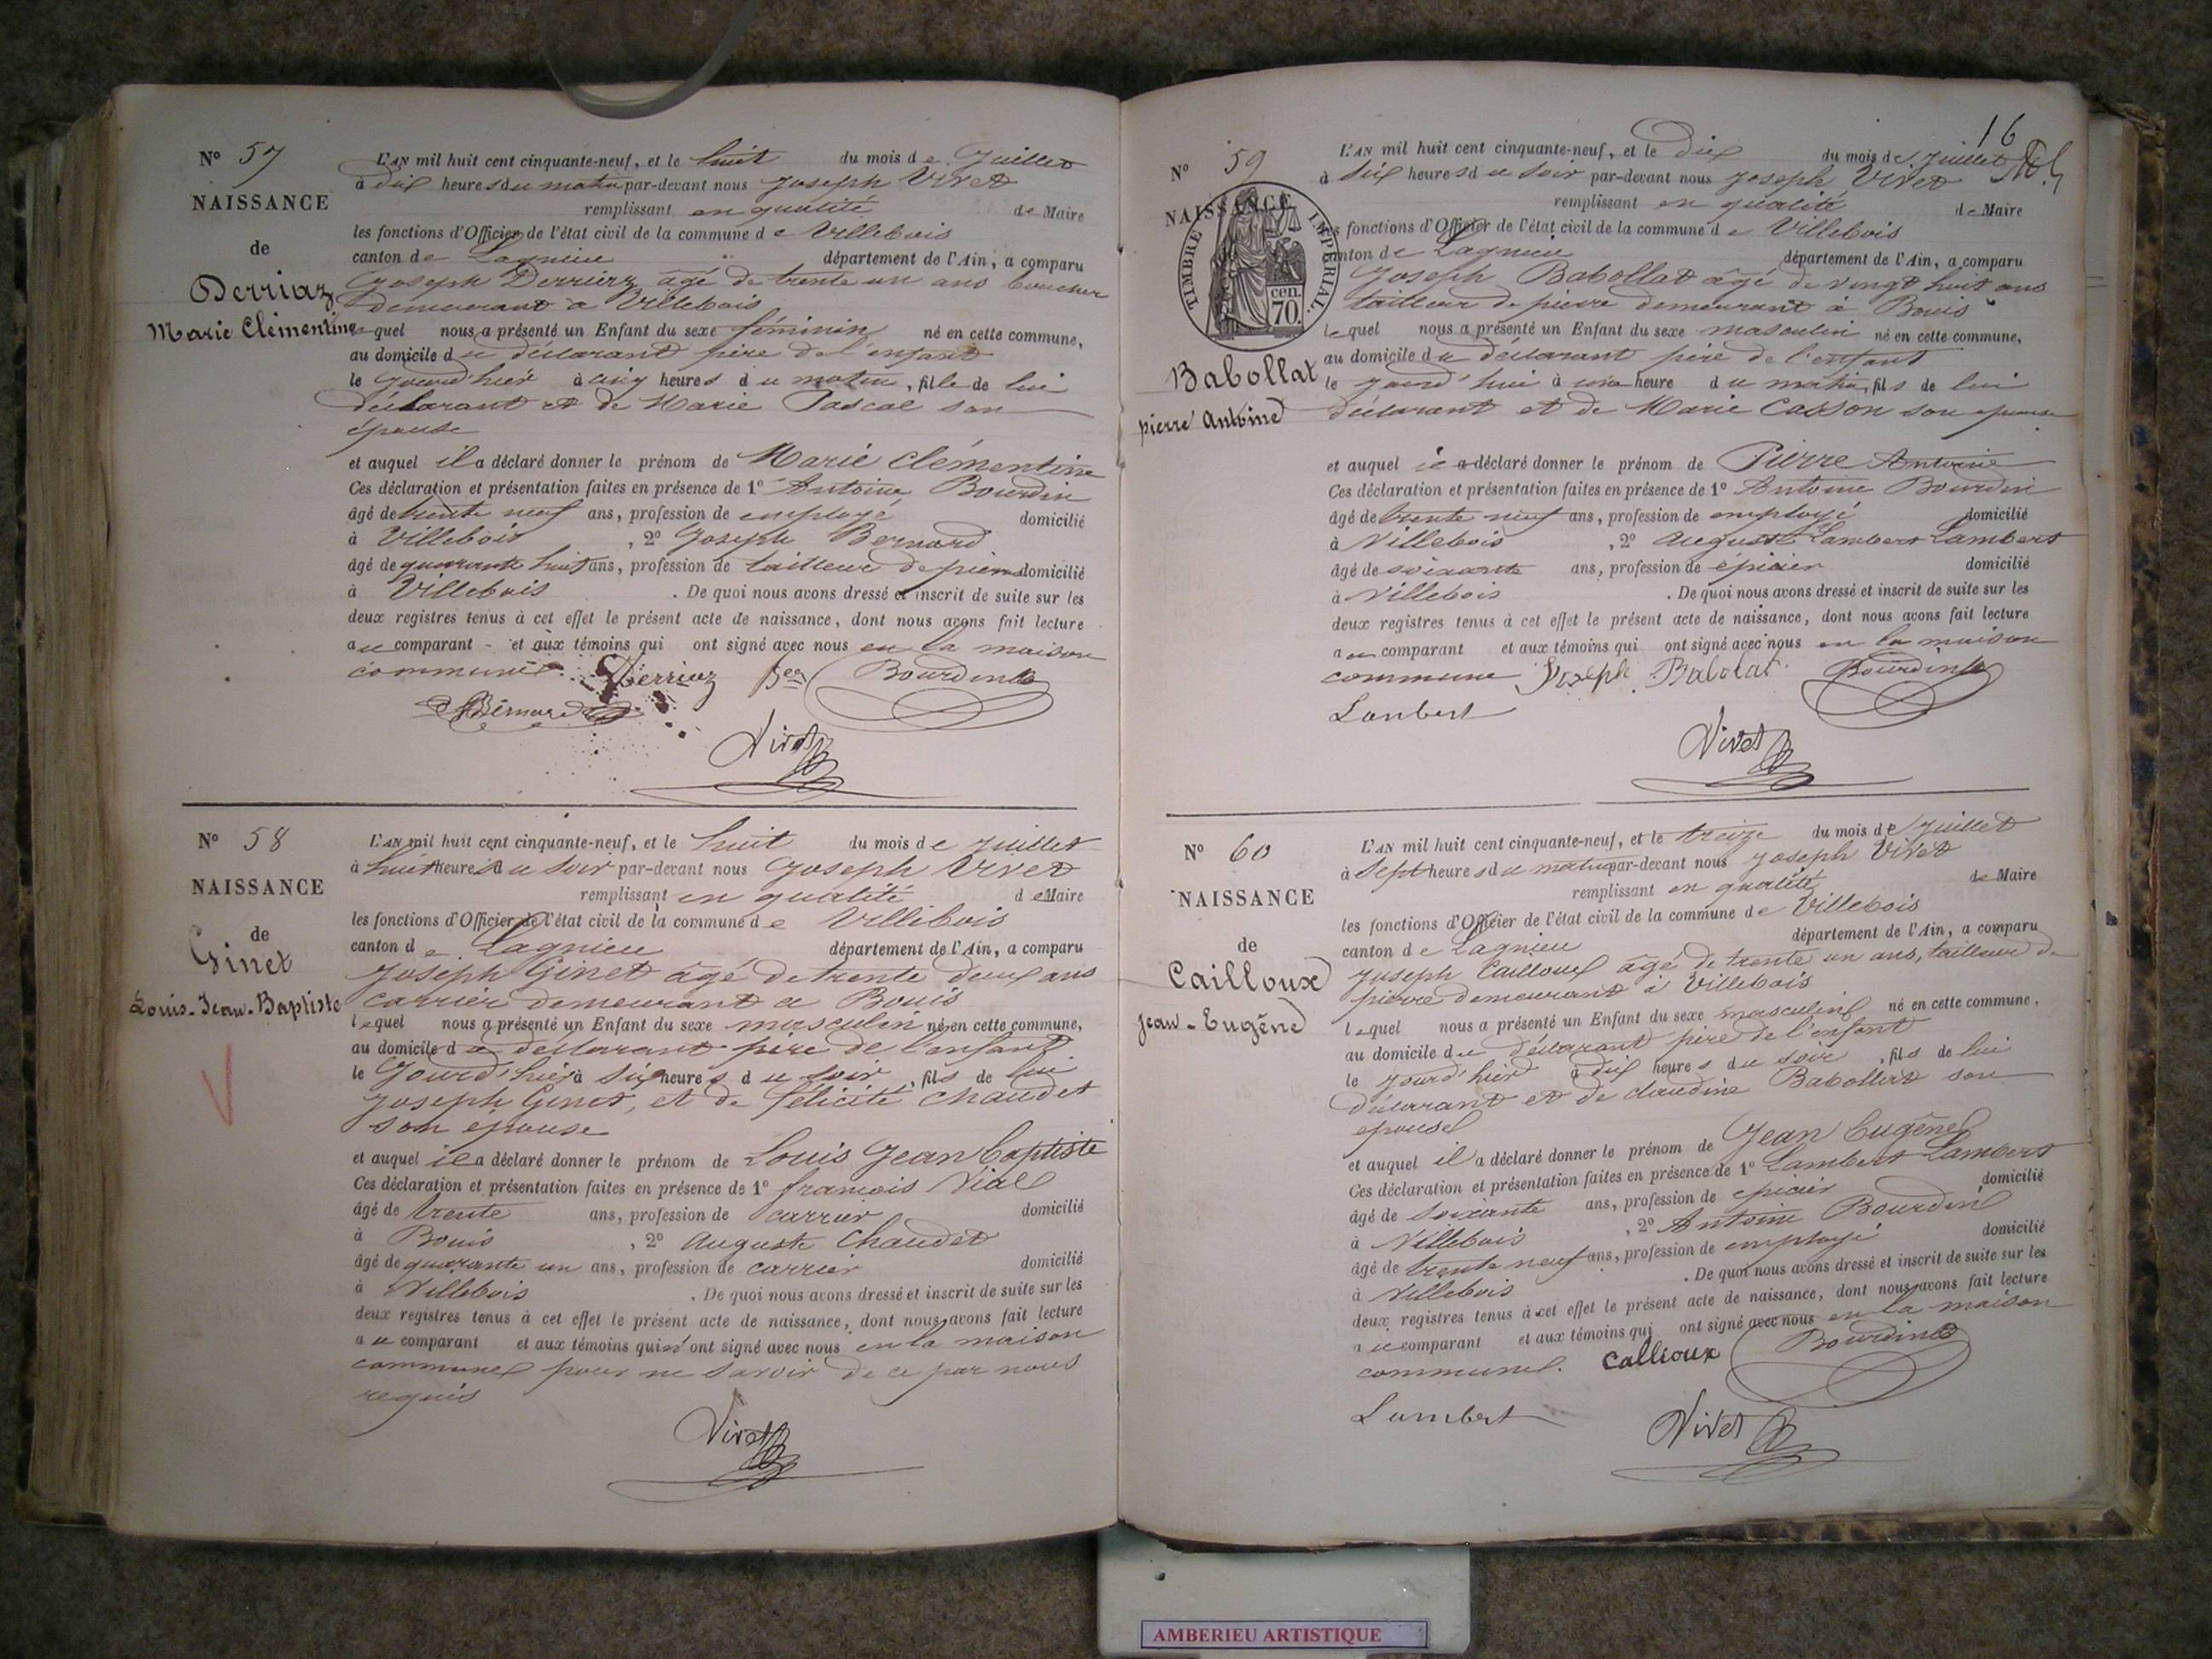 Nº 57
NAISSANCE
de
Derriaz
Marie Clémentine
L'AN mil huit cent cinquante-neuf, et le huit du mois de Juillet
à dix heures du matin par-devant nous Joseph Vivet
remplissant en qualité de Maire
les fonctions d'Officier de l'état civil de la commune de Villebois
canton de Lagnieu département de l'Ain, a comparu
Joseph Derriaz âgé de trente un ans boucher
demeurant à Villebois
lequel nous a présenté un Enfant du sexe féminin né en cette commune,
au domicile du déclarant père de l'enfant
le jourd'hier à cinq heures du matin, fille de lui
déclarant et de Marie Pascal son
épouse
et auquel il a déclaré donner le prénom de Marie Clémentine
Ces déclaration et présentation faites en présence de 1º Antoine Bourdin
âgé de trente neuf ans, profession de employé domicilié
à Villebois, 2º Joseph Bernard
âgé de quarante huit ans, profession de tailleur de pierre domicilié
à Villebois. De quoi nous avons dressé et inscrit de suite sur les
deux registres tenus à cet effet le présent acte de naissance, dont nous avons fait lecture
au comparant et aux témoins qui ont signé avec nous en la maison
commune. Derriaz Bourdin
Bernard
Vivet
Nº 58
NAISSANCE
de
Ginet
Louis-Jean-Baptiste
L'AN mil huit cent cinquante-neuf, et le huit du mois de Juillet
à huit heures du soir par-devant nous Joseph Vivet
remplissant en qualité de Maire
les fonctions d'Officier de l'état civil de la commune de Villebois
canton de Lagnieu département de l'Ain, a comparu
Joseph Ginet âgé de trente deux ans
carrier demeurant a Bouis
lequel nous a présenté un Enfant du sexe masculin né en cette commune,
au domicile du déclarant père de l'enfant
le Jourd'hier à six heures du soir, fils de lui
Joseph Ginet, et de félicité Chaudet
son épouse
et auquel il a déclaré donner le prénom de Louis Jean baptiste
Ces déclaration et présentation faites en présence de 1º françois Vial
âgé de trente ans, profession de carrier domicilié
à Bouis, 2º Auguste Chaudet
âgé de quarante un ans, profession de carrier domicilié
à Villebois. De quoi nous avons dressé et inscrit de suite sur les
deux registres tenus à cet effet le présent acte de naissance, dont nous avons fait lecture
au comparant et aux témoins qui n'ont signé avec nous en la maison
commune pour ne savoir de ce par nous
requis
Vivet
16
Nº 59
NAISSANCE
TIMBRE IMPÉRIAL.
cen.
70.
Babollat
pierre Antoine
L'AN mil huit cent cinquante-neuf, et le dix du mois de Juillet
à six heures du soir par-devant nous Joseph Vivet
remplissant en qualité de Maire
les fonctions d'Officier de l'état civil de la commune de Villebois
canton de Lagnieu département de l'Ain, a comparu
Joseph Babollat âgé de vingt huit ans
tailleur de pierre demeurant à Bouis
lequel nous a présenté un Enfant du sexe masculin né en cette commune,
au domicile du déclarant père de l'enfant
le jourd'hui à une heure du matin, fils de lui
déclarant et de Marie Casson son épouse
et auquel il a déclaré donner le prénom de Pierre Antoine
Ces déclaration et présentation faites en présence de 1º Antoine Bourdin
âgé de trente neuf ans, profession de employé domicilié
à Villebois, 2º auguste Lambert Lambert
âgé de soixante ans, profession de épicier domicilié
à Villebois. De quoi nous avons dressé et inscrit de suite sur les
deux registres tenus à cet effet le présent acte de naissance, dont nous avons fait lecture
au comparant et aux témoins qui ont signé avec nous en la maison
commune Joseph Babolat Bourdin
Lambert
Vivet
Nº 60
NAISSANCE
de
Cailloux
Jean-Eugêne
L'AN mil huit cent cinquante-neuf, et le treize du mois de Juillet
à sept heures du matin par-devant nous Joseph Vivet
remplissant en qualité de Maire
les fonctions d'Officier de l'état civil de la commune de Villebois
canton de Lagnieu département de l'Ain, a comparu
Joseph Cailloux âgé de trente un ans, tailleur de
pierre demeurant à Villebois
lequel nous a présenté un Enfant du sexe masculin né en cette commune,
au domicile du déclarant père de l'enfant
le jourd'hier à dix heures du soir, fils de lui
déclarant et de claudine Babollat son
épouse
et auquel il a déclaré donner le prénom de Jean Eugêne
Ces déclaration et présentation faites en présence de 1º Lambert Lambert
âgé de soixante ans, profession de épicier domicilié
à Villebois, 2º Antoine Bourdin
âgé de trente neuf ans, profession de employé domicilié
à Villebois. De quoi nous avons dressé et inscrit de suite sur les
deux registres tenus à cet effet le présent acte de naissance, dont nous avons fait lecture
au comparant et aux témoins qui ont signé avec nous en la maison
commune. Callioux Bourdin
Lambert Vivet
AMBERIEU ARTISTIQUE